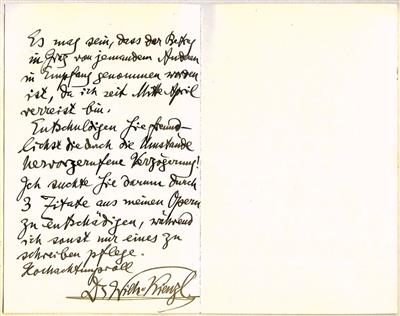 Es mag sein, dass der Betrag
in Graz von jemandem Anderen
in Empfang genommen worden
ist, da ich seit Mitte April
verreist bin.
Entschuldigen Sie freund-
lichst die durch die Umstände
hervorgerufene Verzögerung!
Ich suchte Sie darum durch
3 Zitate aus meinen Opern
zu entschädigen, während
ich sonst nur eines zu
schreiben pflege.
Hochachtungsvoll
Dr Wilh. Kienzl.